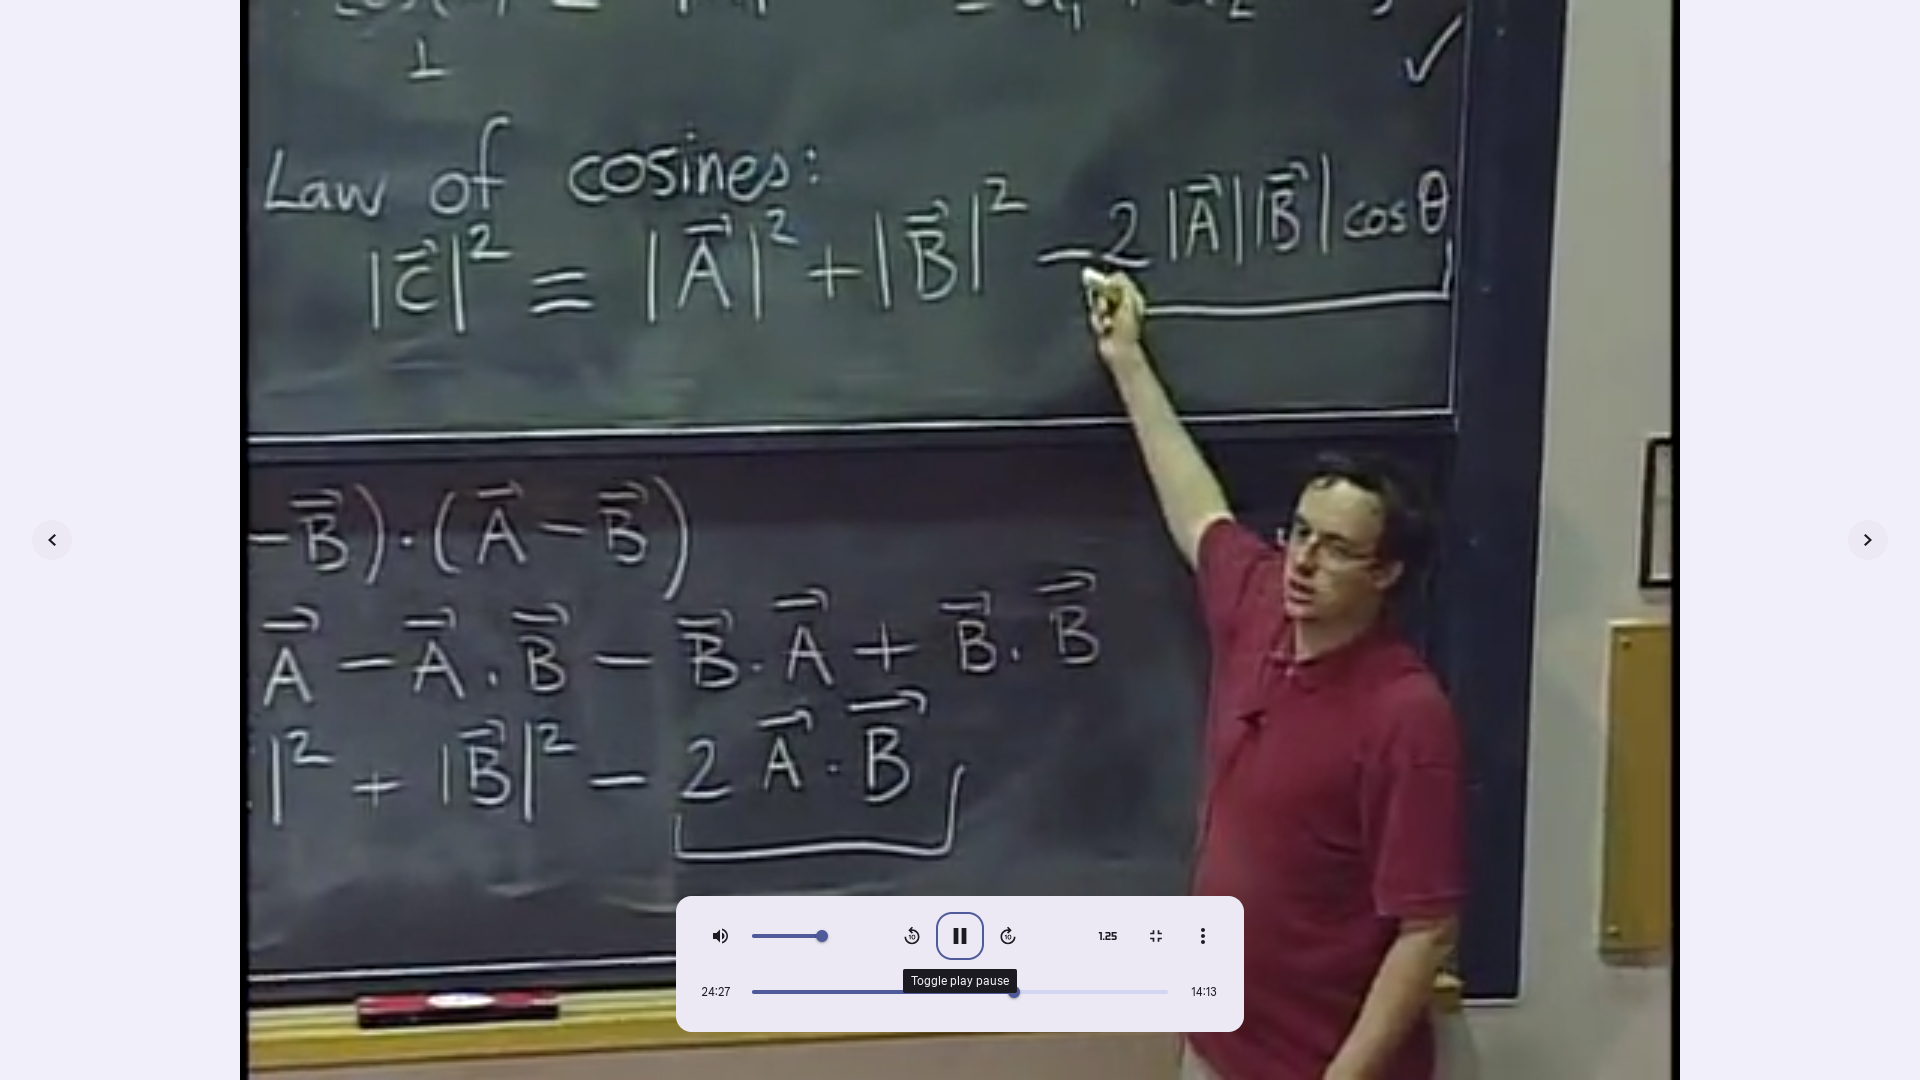 ⊥
✓
Law of cosines:
|C⃗|² = |A⃗|² + |B⃗|² − 2 |A⃗||B⃗| cos θ
−B⃗)·(A⃗ − B⃗)
A⃗ − A⃗·B⃗ − B⃗·A⃗ + B⃗·B⃗
|² + |B⃗|² − 2 A⃗·B⃗
10
10
1.25
Toggle play pause
24:27
14:13